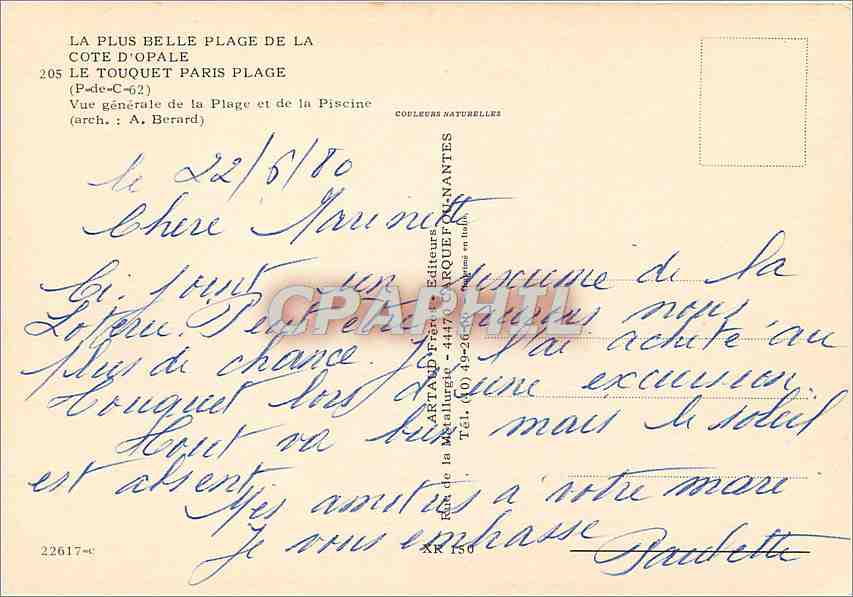 LA PLUS BELLE PLAGE DE LA
COTE D'OPALE
205 LE TOUQUET PARIS PLAGE
(P-de-C-62)
Vue générale de la Plage et de la Piscine
(arch. : A. Berard)
COULEURS NATURELLES
le 22/6/80
Chere Marinette
Ci. joint un sixieme de la
Loterie. Peut être aurons nous
plus de chance. Je l'ai acheté au
Touquet lors d'une excursion.
Tout va bien mais le soleil
est absent
Mes amitiés a votre mare
Je vous embrasse
Paulette
ARTAUD Frères - Editeurs
Rue de la Métallurgie - 44470 CARQUEFOU-NANTES
Tél. (40) 49-26-00
Imprimé en Italie
CPARPHIL
22617-C
XR 150